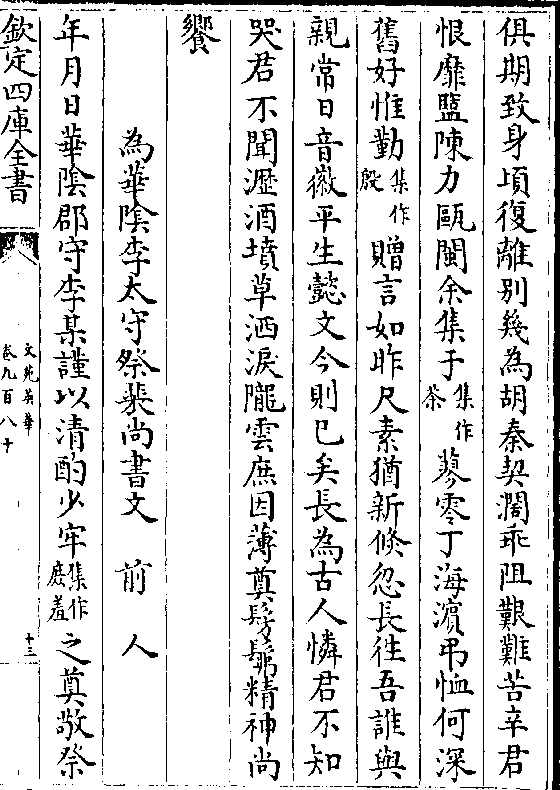 俱期致身頃復離别幾為胡秦契濶乖阻艱難苦辛君
恨靡盬陳力甌閩余集于集作茶蓼零丁海濵弔恤何深
舊好惟勤集作殷贈言如昨尺素猶新倐忽長徃吾誰與
親常日音徽平生懿文今則已矣長為古人憐君不知
哭君不聞瀝酒墳草洒淚隴雲庶因薄奠髣髴精神尚
饗
為華陰李太守祭裴尚書文 前人
年月日華陰郡守李某謹以清酌少牢集作庶羞之奠敬祭
欽定四庫全書
文苑英華
卷九百八十
十三